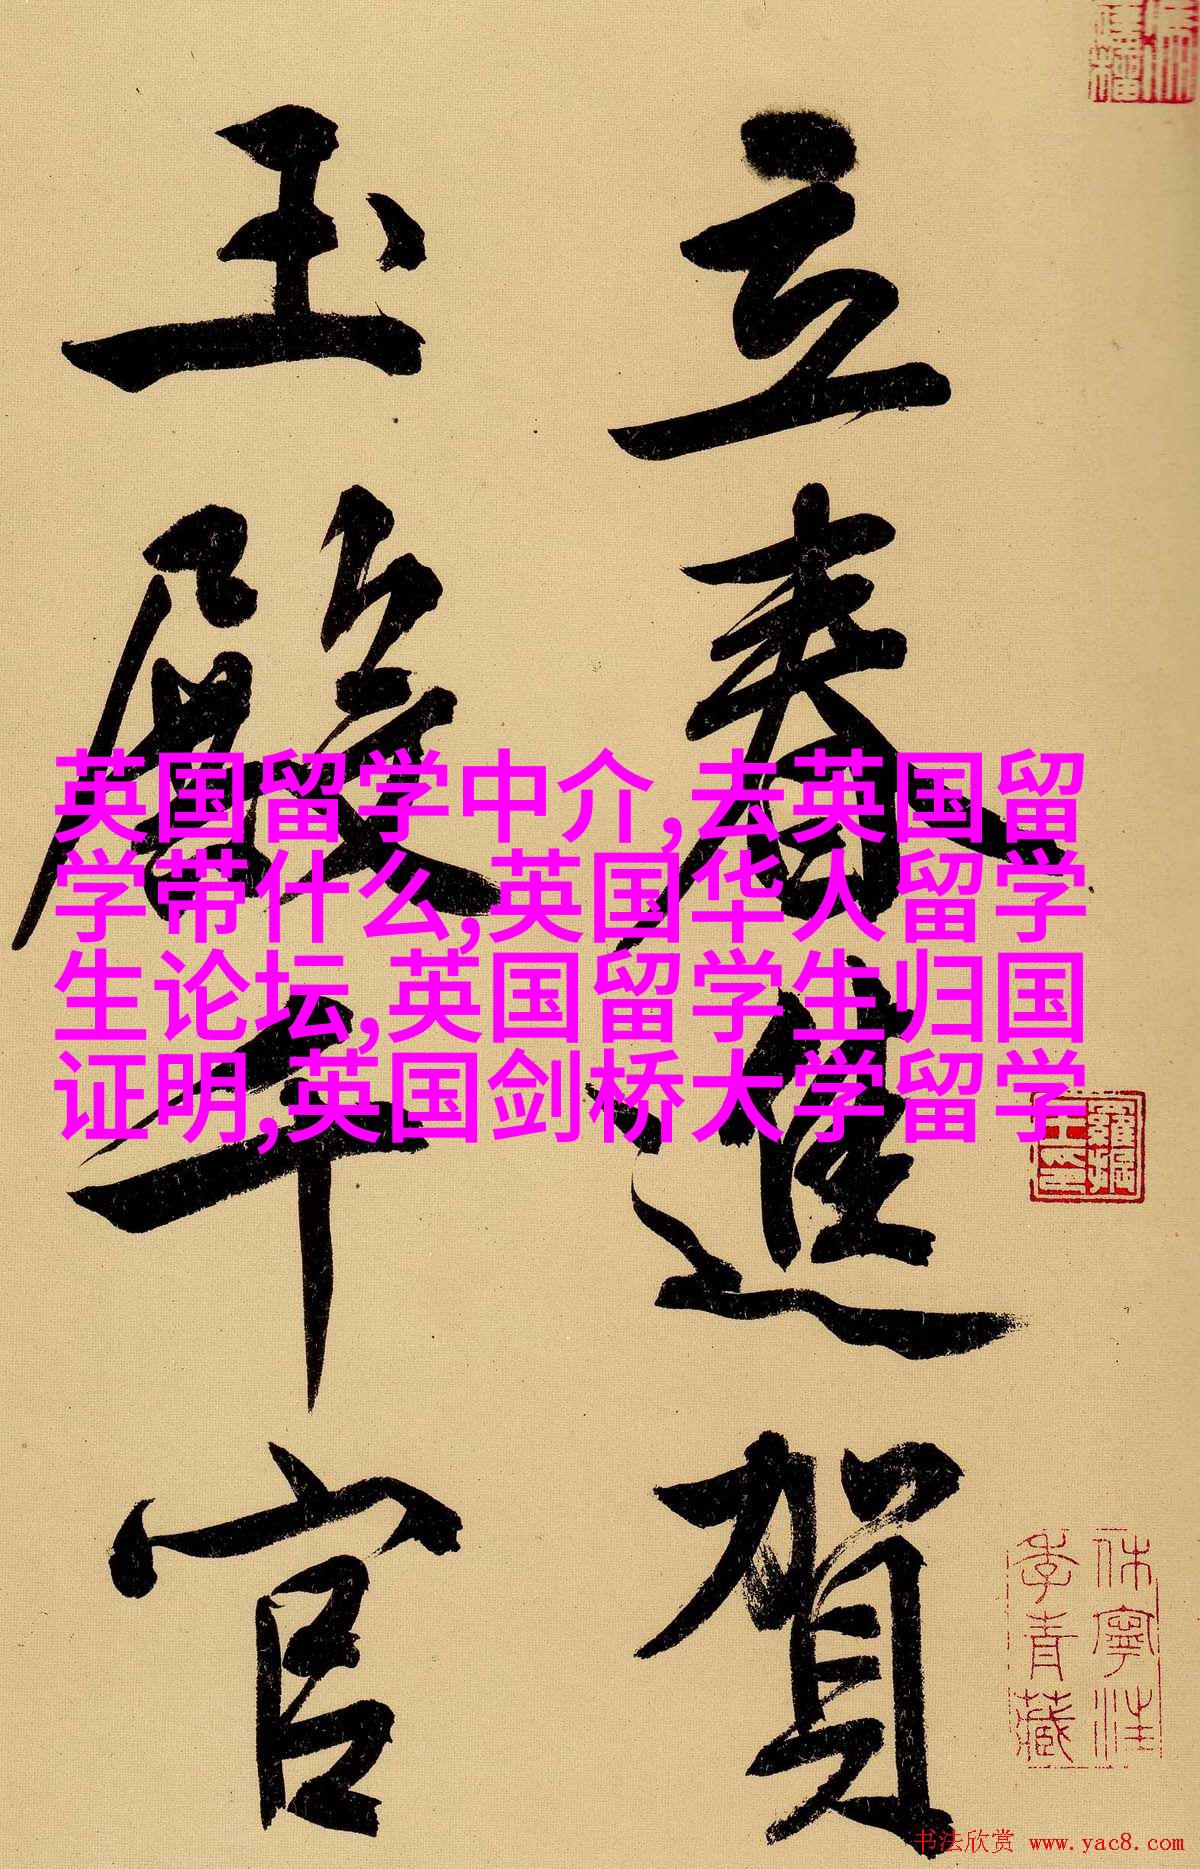 立春進賀
玉殿千官
英国留学中介,去英国留
学带什么,英国华人留学
生论坛,英国留学生归国
证明,英国剑桥大学留学
休寧汪
季青藏
书法欣赏 www.yac8.com